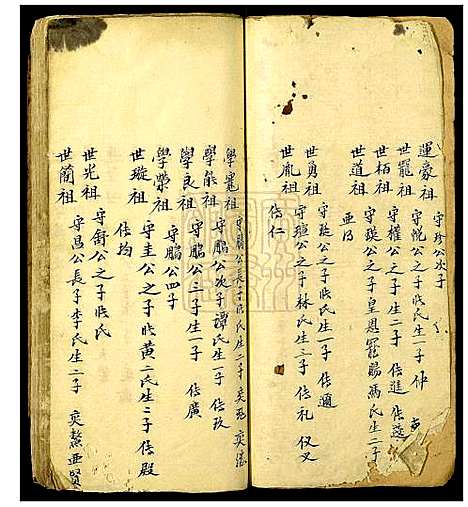 運豪祖 守珍公次子
世寵祖 守悅公之子張氏生一子 仲
世栢祖 守權公之子生二子 俊進 俊
世道祖 守瑛公之子皇恩寵賜馮氏生二子
世勇祖 守珽公之子張氏生一子 俊
世胤祖 守瑄公之子林氏生三子 俊礼 仪义
俊仁
學寬祖 守鵬公長子張氏生二子
學能祖 守鵬公次子譚氏生一子 俊玖
學良祖 守鵬公之子生一子 俊廣
學榮祖 守鵬公四子
世璇祖 守圭公之子張黃二氏生二子 俊殿
俊均
世光祖 守舒公之子張氏
世蘭祖 守昌公長子李氏生二子 奕鰲亚賢